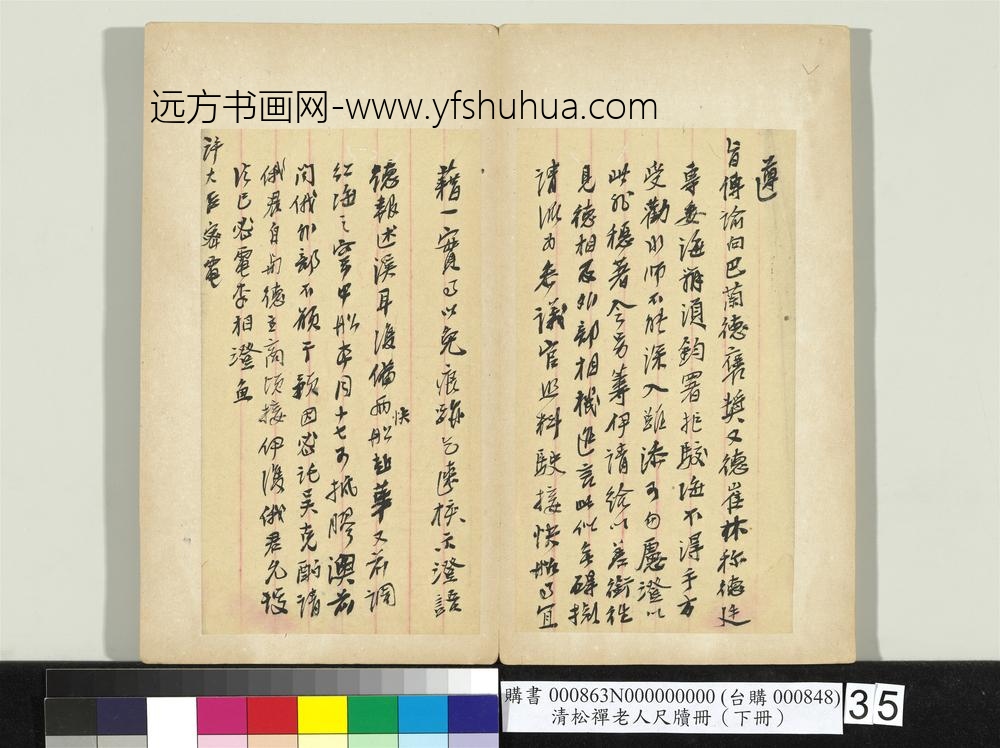 远方书画网-www.yfshuhua.com
遵
旨傳諭向巴蘭德褒獎又德崔林称德廷
專委海爾須鈞署拒駁海不得手方
受勸水師不能深入雖添可毋慮澄以
此外穩著今另籌伊請給以差銜往
見德相及外部相機進言此似無礙擬
請派为参議官照料駛接快船事宜
藉一寶事以免痕跡乞速核示澄語
德報述溪耳後備两快船赴華又前調
紅海之軍甲船本月十七可抵膠澳前
问俄外部不願干預因密託吴克酌請
俄君自与德主商顷接伊復俄君允發
法已密電李相澄魚
許大臣密電
購書 000863N000000000 (台購 000848)
清松禪老人尺牘冊（下冊）
35